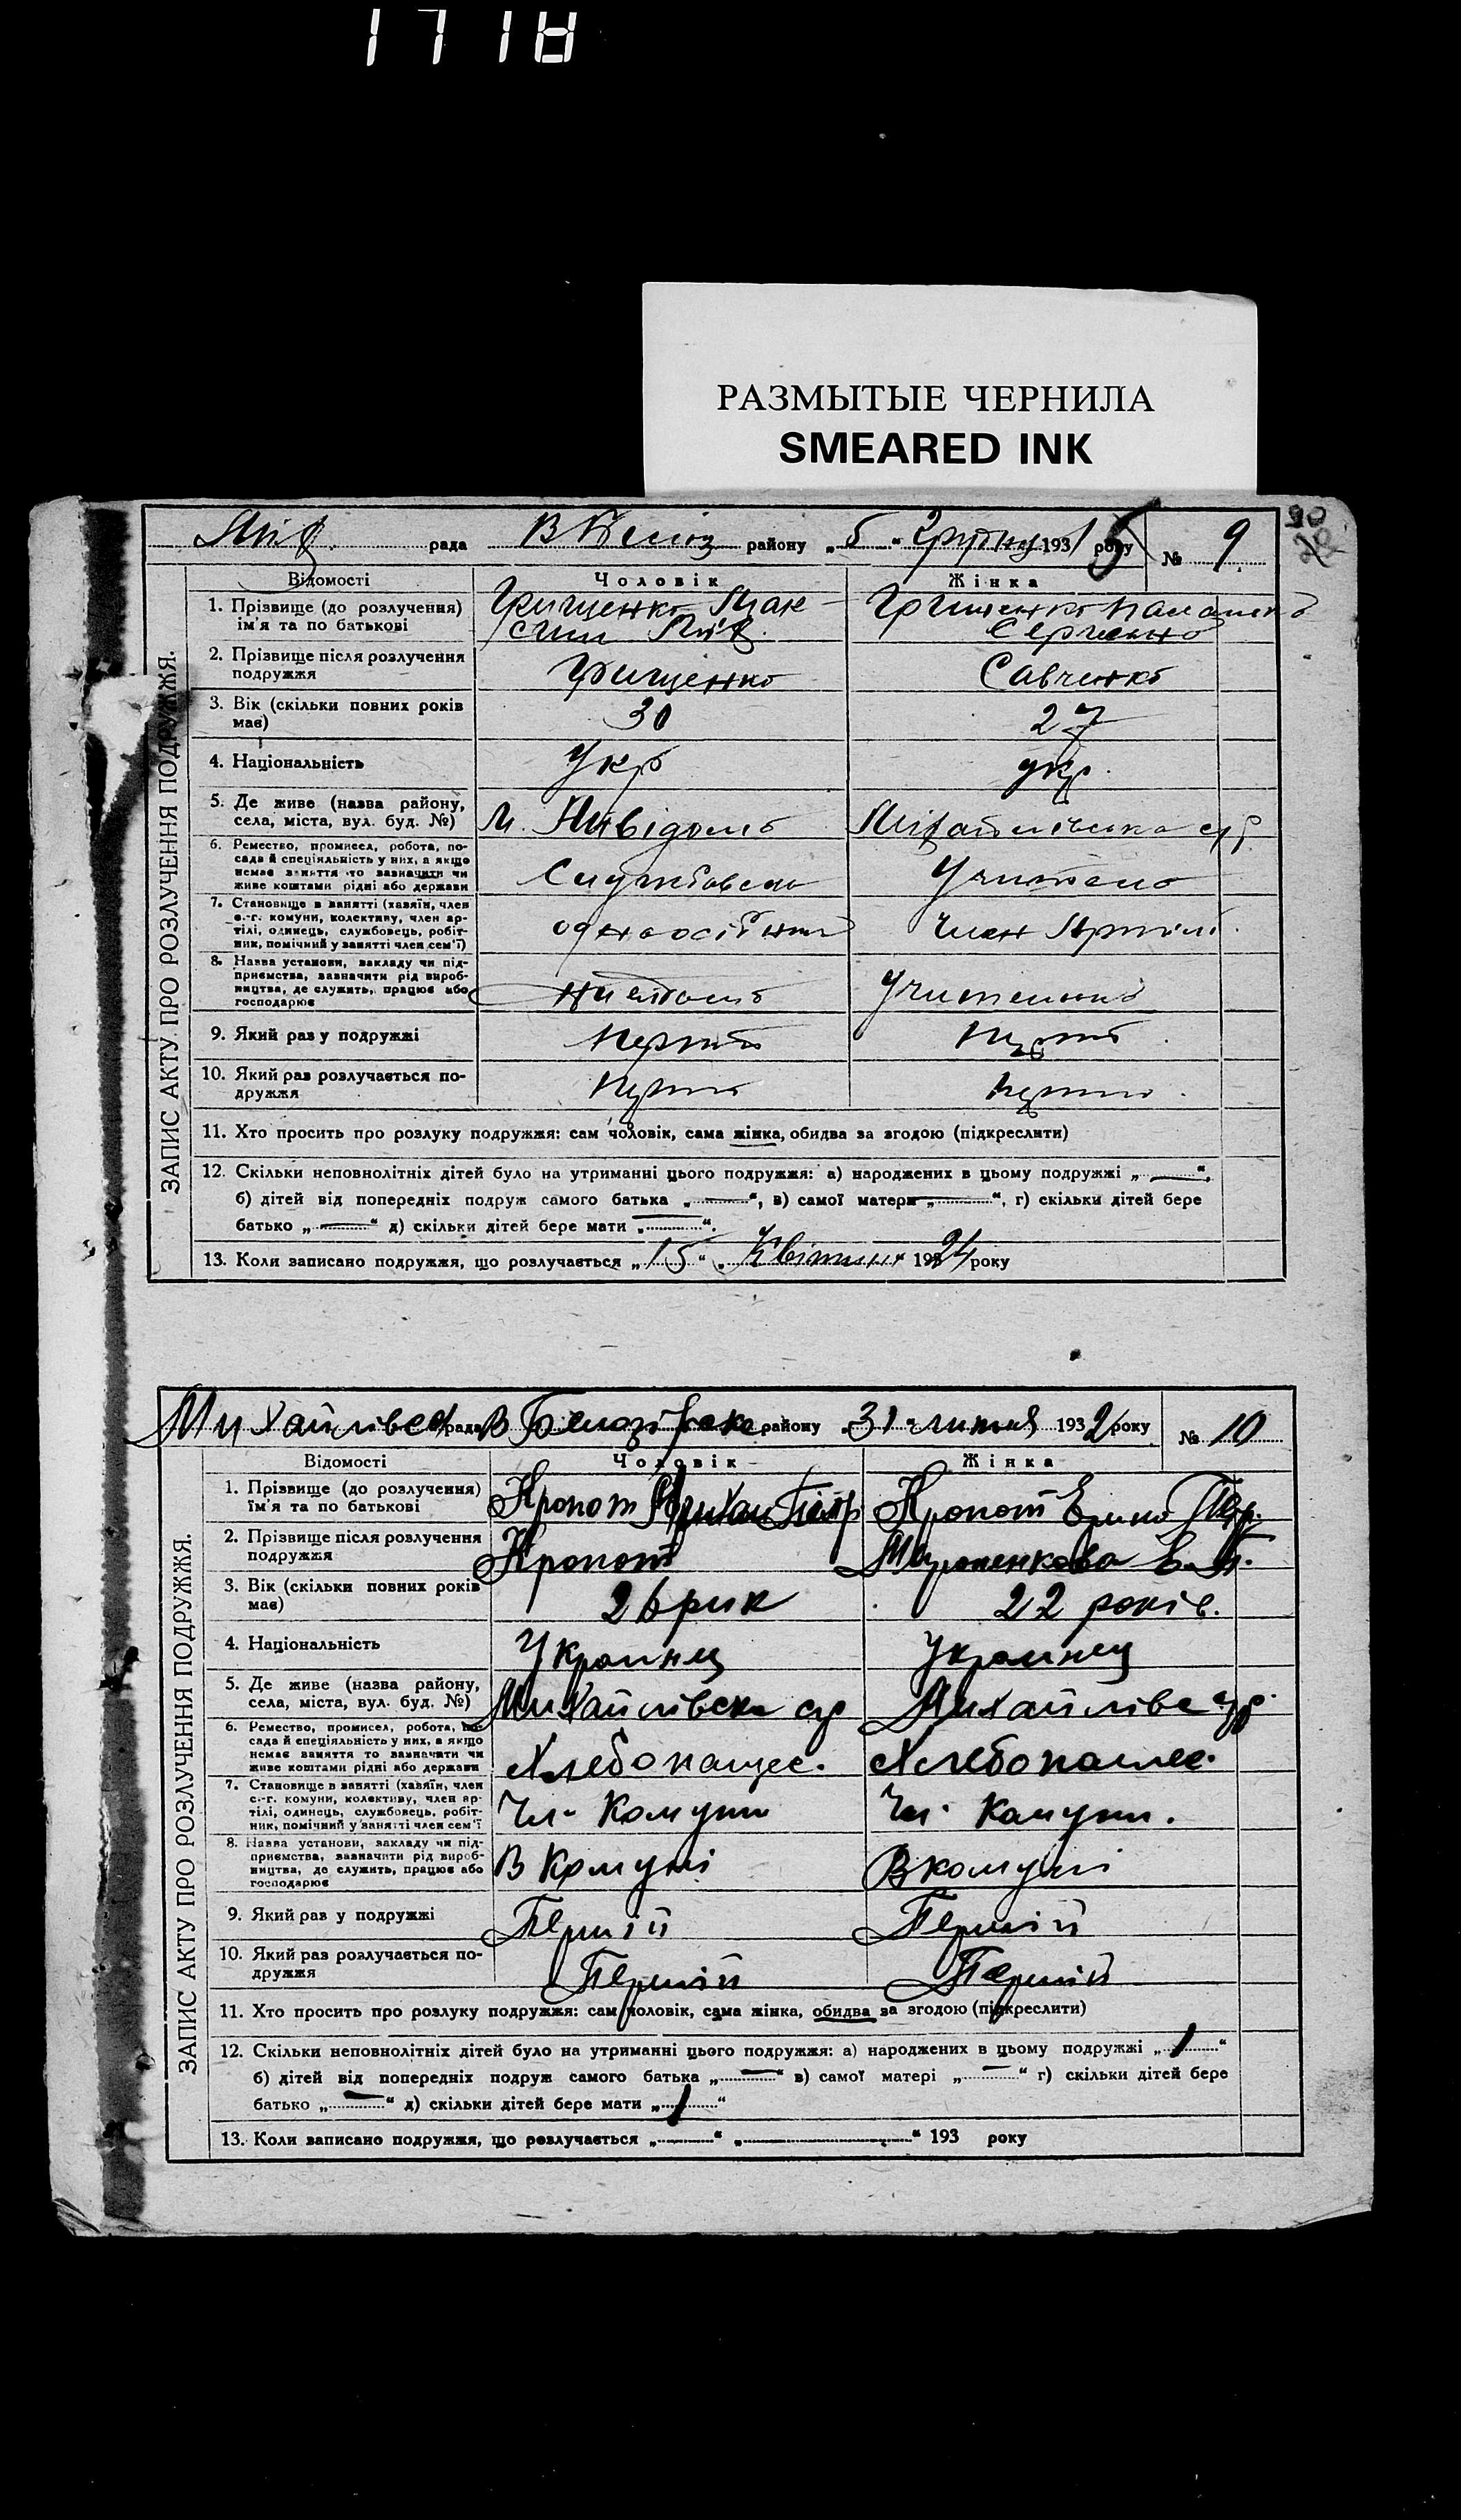 1718
РАЗМЫТЫЕ ЧЕРНИЛА
SMEARED INK
90
Мих. рада В Белоз району „5“ грудню 1931 року № 9
Відомості Чоловік Жінка
ЗАПИС АКТУ ПРО РОЗЛУЧЕННЯ ПОДРУЖЖЯ.
1. Прізвище (до розлучення) Грищенко Мак- Грищенко
ім'я та по батькові сим Мих.
2. Прізвище після розлучення Грищенко Савченко
подружжя
3. Вік (скільки повних років 30 27
має)
4. Національність Укр укр.
5. Де живе (назва району,
села, міста, вул. буд. №) Михайлівська с/р
6. Ремество, промисел, робота, по-
сада й спеціяльність у них, а якщо
немає заняття то зазначити чи
живе коштами рідні або держави Службовець Учитель
7. Становище в занятті (хазяїн, член
с.-г. комуни, колективу, член ар-
тілі, одинець, службовець, робіт-
ник, помічний у занятті член сем'ї) одноосібний член Артілі.
8. Назва установи, закладу чи під-
приємства, зазначити рід вироб-
ництва, де служить, працює або
господарює
9. Який раз у подружжі Перший Перший
10. Який раз розлучається по- Перший Перший
дружжя
11. Хто просить про розлуку подружжя: сам чоловік, сама жінка, обидва за згодою (підкреслити)
12. Скільки неповнолітніх дітей було на утриманні цього подружжя: а) народжених в цьому подружжі „—“,
б) дітей від попередніх подруж самого батька „—“, в) самої матери „—“, г) скільки дітей бере
батько „—“ д) скільки дітей бере мати „—“.
13. Коли записано подружжя, що розлучається „15“ „Квітня“ 1924 року
Михайлівськ рада В Білозірська району 31 липня 1932 року № 10
Відомості Чоловік Жінка
ЗАПИС АКТУ ПРО РОЗЛУЧЕННЯ ПОДРУЖЖЯ.
1. Прізвище (до розлучення) Кропот Петр Кропот
їм'я та по батькові
2. Прізвище після розлучення Кропот
подружжя
3. Вік (скільки повних років 26 рик 22 років.
має)
4. Національність Украинец Украинец
5. Де живе (назва району,
села, міста, вул. буд. №) Михайлівська ср Михайлівс ср.
6. Ремество, промисел, робота, по-
сада й спеціяльність у них, а якщо
немає заняття то зазначити чи
живе коштами рідні або держави Хлебопашес. Хлебопашес.
7. Становище в занятті (хазяїн, член
с.-г. комуни, колективу, член ар-
тілі, одинець, службовець, робіт-
ник, помічний у занятті член сем'ї Чл. Комуни Чл. Комуни.
8. Назва установи, закладу чи під-
приємства, зазначити рід вироб-
ництва, де служить, працює або
господарює В Комуні В комуні
9. Який раз у подружжі Першій Першій
10. Який раз розлучається по- Першій Першій
дружжя
11. Хто просить про розлуку подружжя: сам чоловік, сама жінка, обидва за згодою (підкреслити)
12. Скільки неповнолітніх дітей було на утриманні цього подружжя: а) народжених в цьому подружжі „1“
б) дітей від попередніх подруж самого батька „—“ в) самої матері „—“ г) скільки дітей бере
батько „—“ д) скільки дітей бере мати „1“
13. Коли записано подружжя, що розлучається „“ „“ 193 року